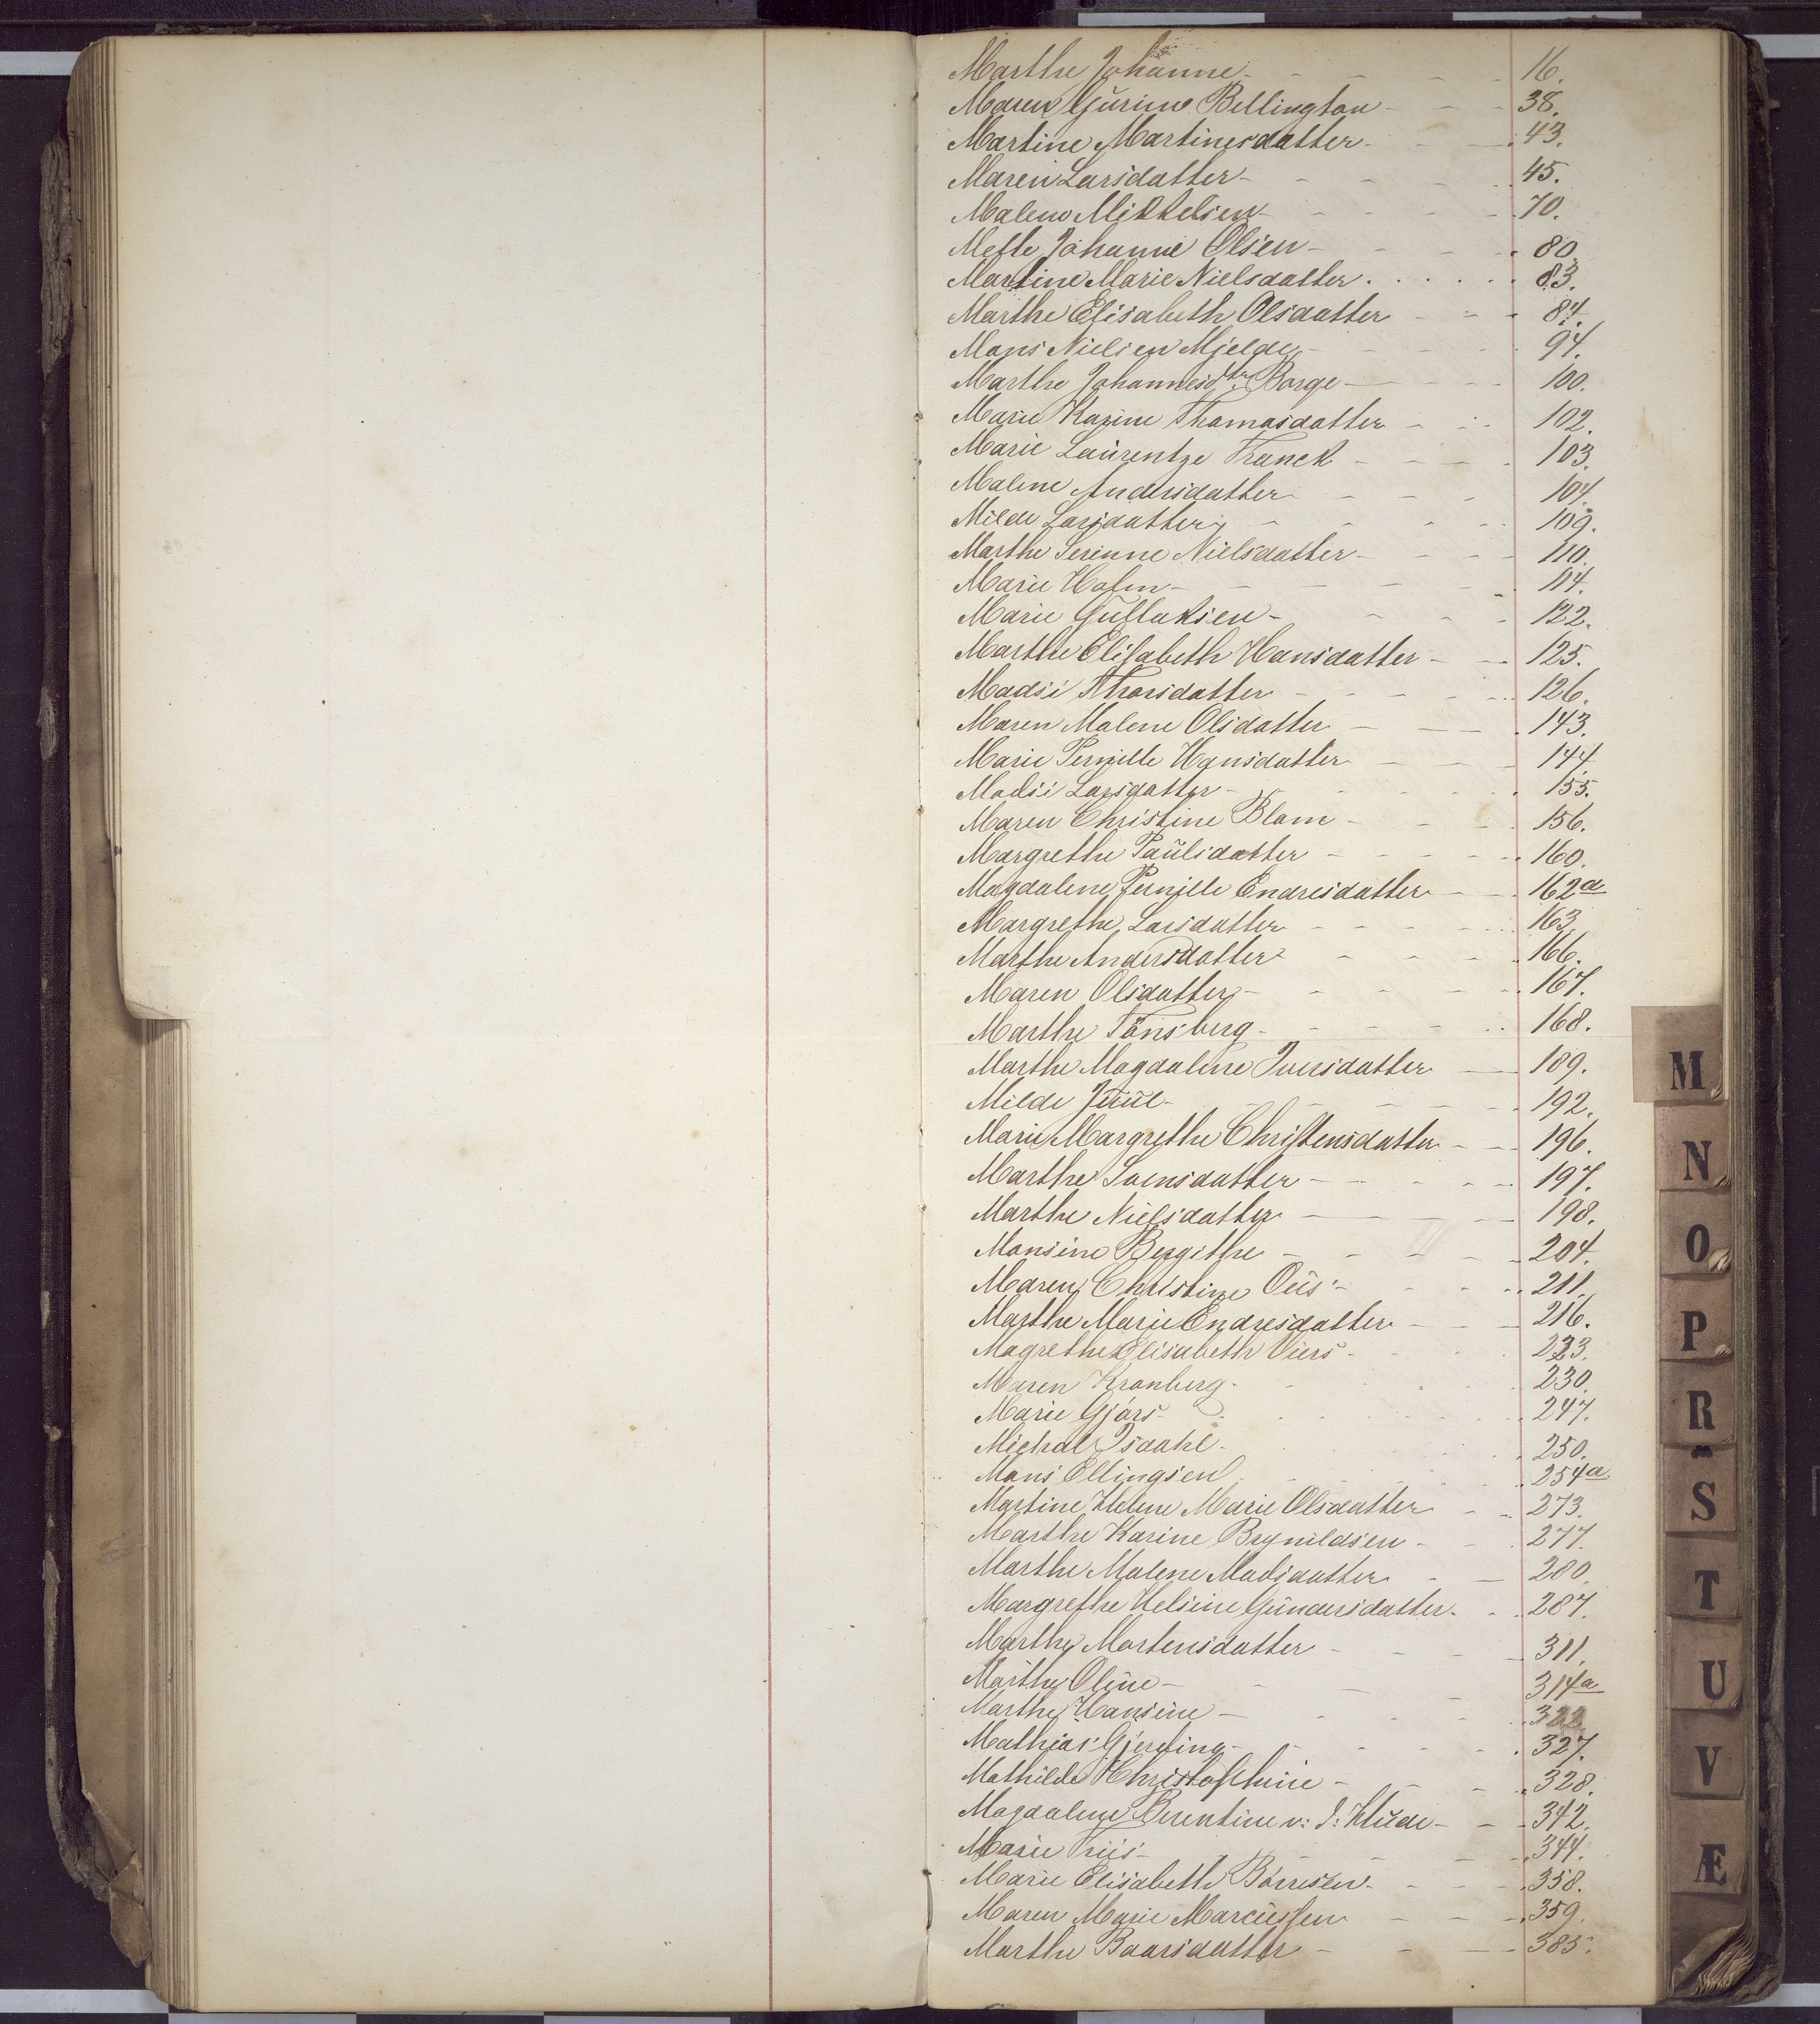 Marthe Johanne - 16.
Maren Gurine Bellington - 38.
Martine Martinesdatter - 43.
Maren Larsdatter - 45.
Malene Mikkelsen - 70.
Mette Johanne Olsen - 80.
Martine Marie Nielsdatter - 83.
Marthe Elisabeth Olsdatter - 84.
Mons Nielsen Mjelde - 94.
Marthe Johannesdtr Borge - 100.
Marie Karine Thomasdatter - 102.
Marie Laurentze Franck - 103.
Malene Andersdatter - 104.
Milde Larsdatter - 109.
Marthe Serinne Nielsdatter - 110.
Marie Holm - 114.
Marie Gullaksen - 122.
Marthe Elisabeth Hansdatter - 125.
Madsi Thorsdatter - 126.
Maren Malene Olsdatter - 143.
Marie Pernille Hansdatter - 144.
Madsi Larsdatter - 155.
Maren Christine Blom - 156.
Margrethe Paulsdatter - 160.
Magdalene Pernille Endresdatter - 162a
Margrethe Larsdatter - 163.
Marthe Andersdatter - 166.
Maren Olsdatter - 167.
Marthe Tönsberg - 168.
Marthe Magdalene Iversdatter - 189.
Milde Juul - 192.
Marie Margrethe Christensdatter - 196.
Marthe Svensdatter - 197.
Marthe Nielsdatter - 198.
Monsine Bergithe - 204.
Maren Christine - 211.
Marthe Marie Endresdatter - 216.
Magrethe Elisabeth - 223.
Maren Kronberg - 230.
Marie Gjörs - 247.
Michal Isdahl - 250.
Mons Ellingsen - 254a.
Martine Helene Marie Olsdatter - 273.
Marthe Karine Brynildsen - 277.
Marthe Malene Madsdatter - 280.
Margrethe Helsine Gundersdatter - 287.
Marthe Mortensdatter - 311.
Marthe Oline - 314a
Marthe Hansine - 322
Mathias Gjerding - 327.
Mathilde Christophine - 328.
Magdalene Berentine v: d: - 342.
Marie Friis - 344.
Marie Elisabeth Börresen - 358.
Maren Marie Marcussen - 359.
Marthe Baarsdatter - 385.
M
N
O
P
R
S
T
U
V
Æ